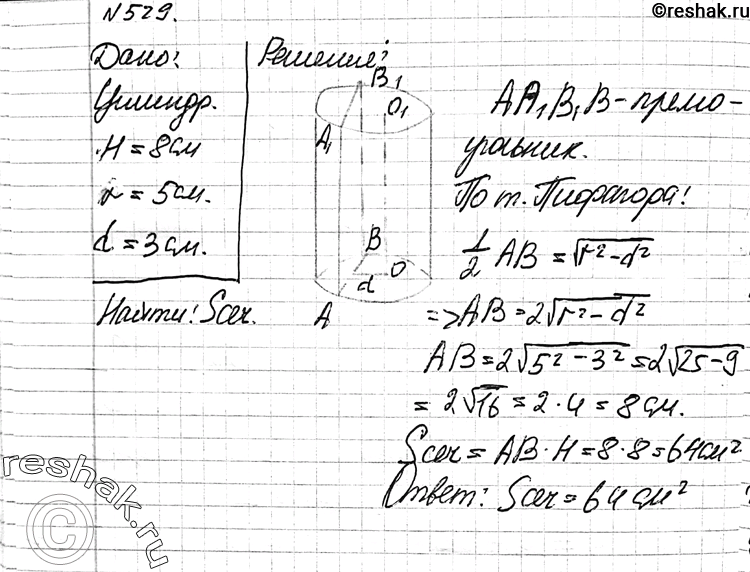 ©reshak.ru
№529.
Дано:
Цилиндр.
H = 8 см
r = 5 см.
d = 3 см.
Найти: Sсеч.
Решение:
B1
O1
A1
B
O
d
A
AA1B1B - прямо-
угольник.
По т. Пифагора:
1/2 AB = √(r² - d²)
=> AB = 2√(r² - d²)
AB = 2√(5² - 3²) = 2√(25 - 9)
= 2√16 = 2 · 4 = 8 см.
Sсеч = AB · H = 8 · 8 = 64 см²
Ответ: Sсеч = 64 см²
reshak.ru
©